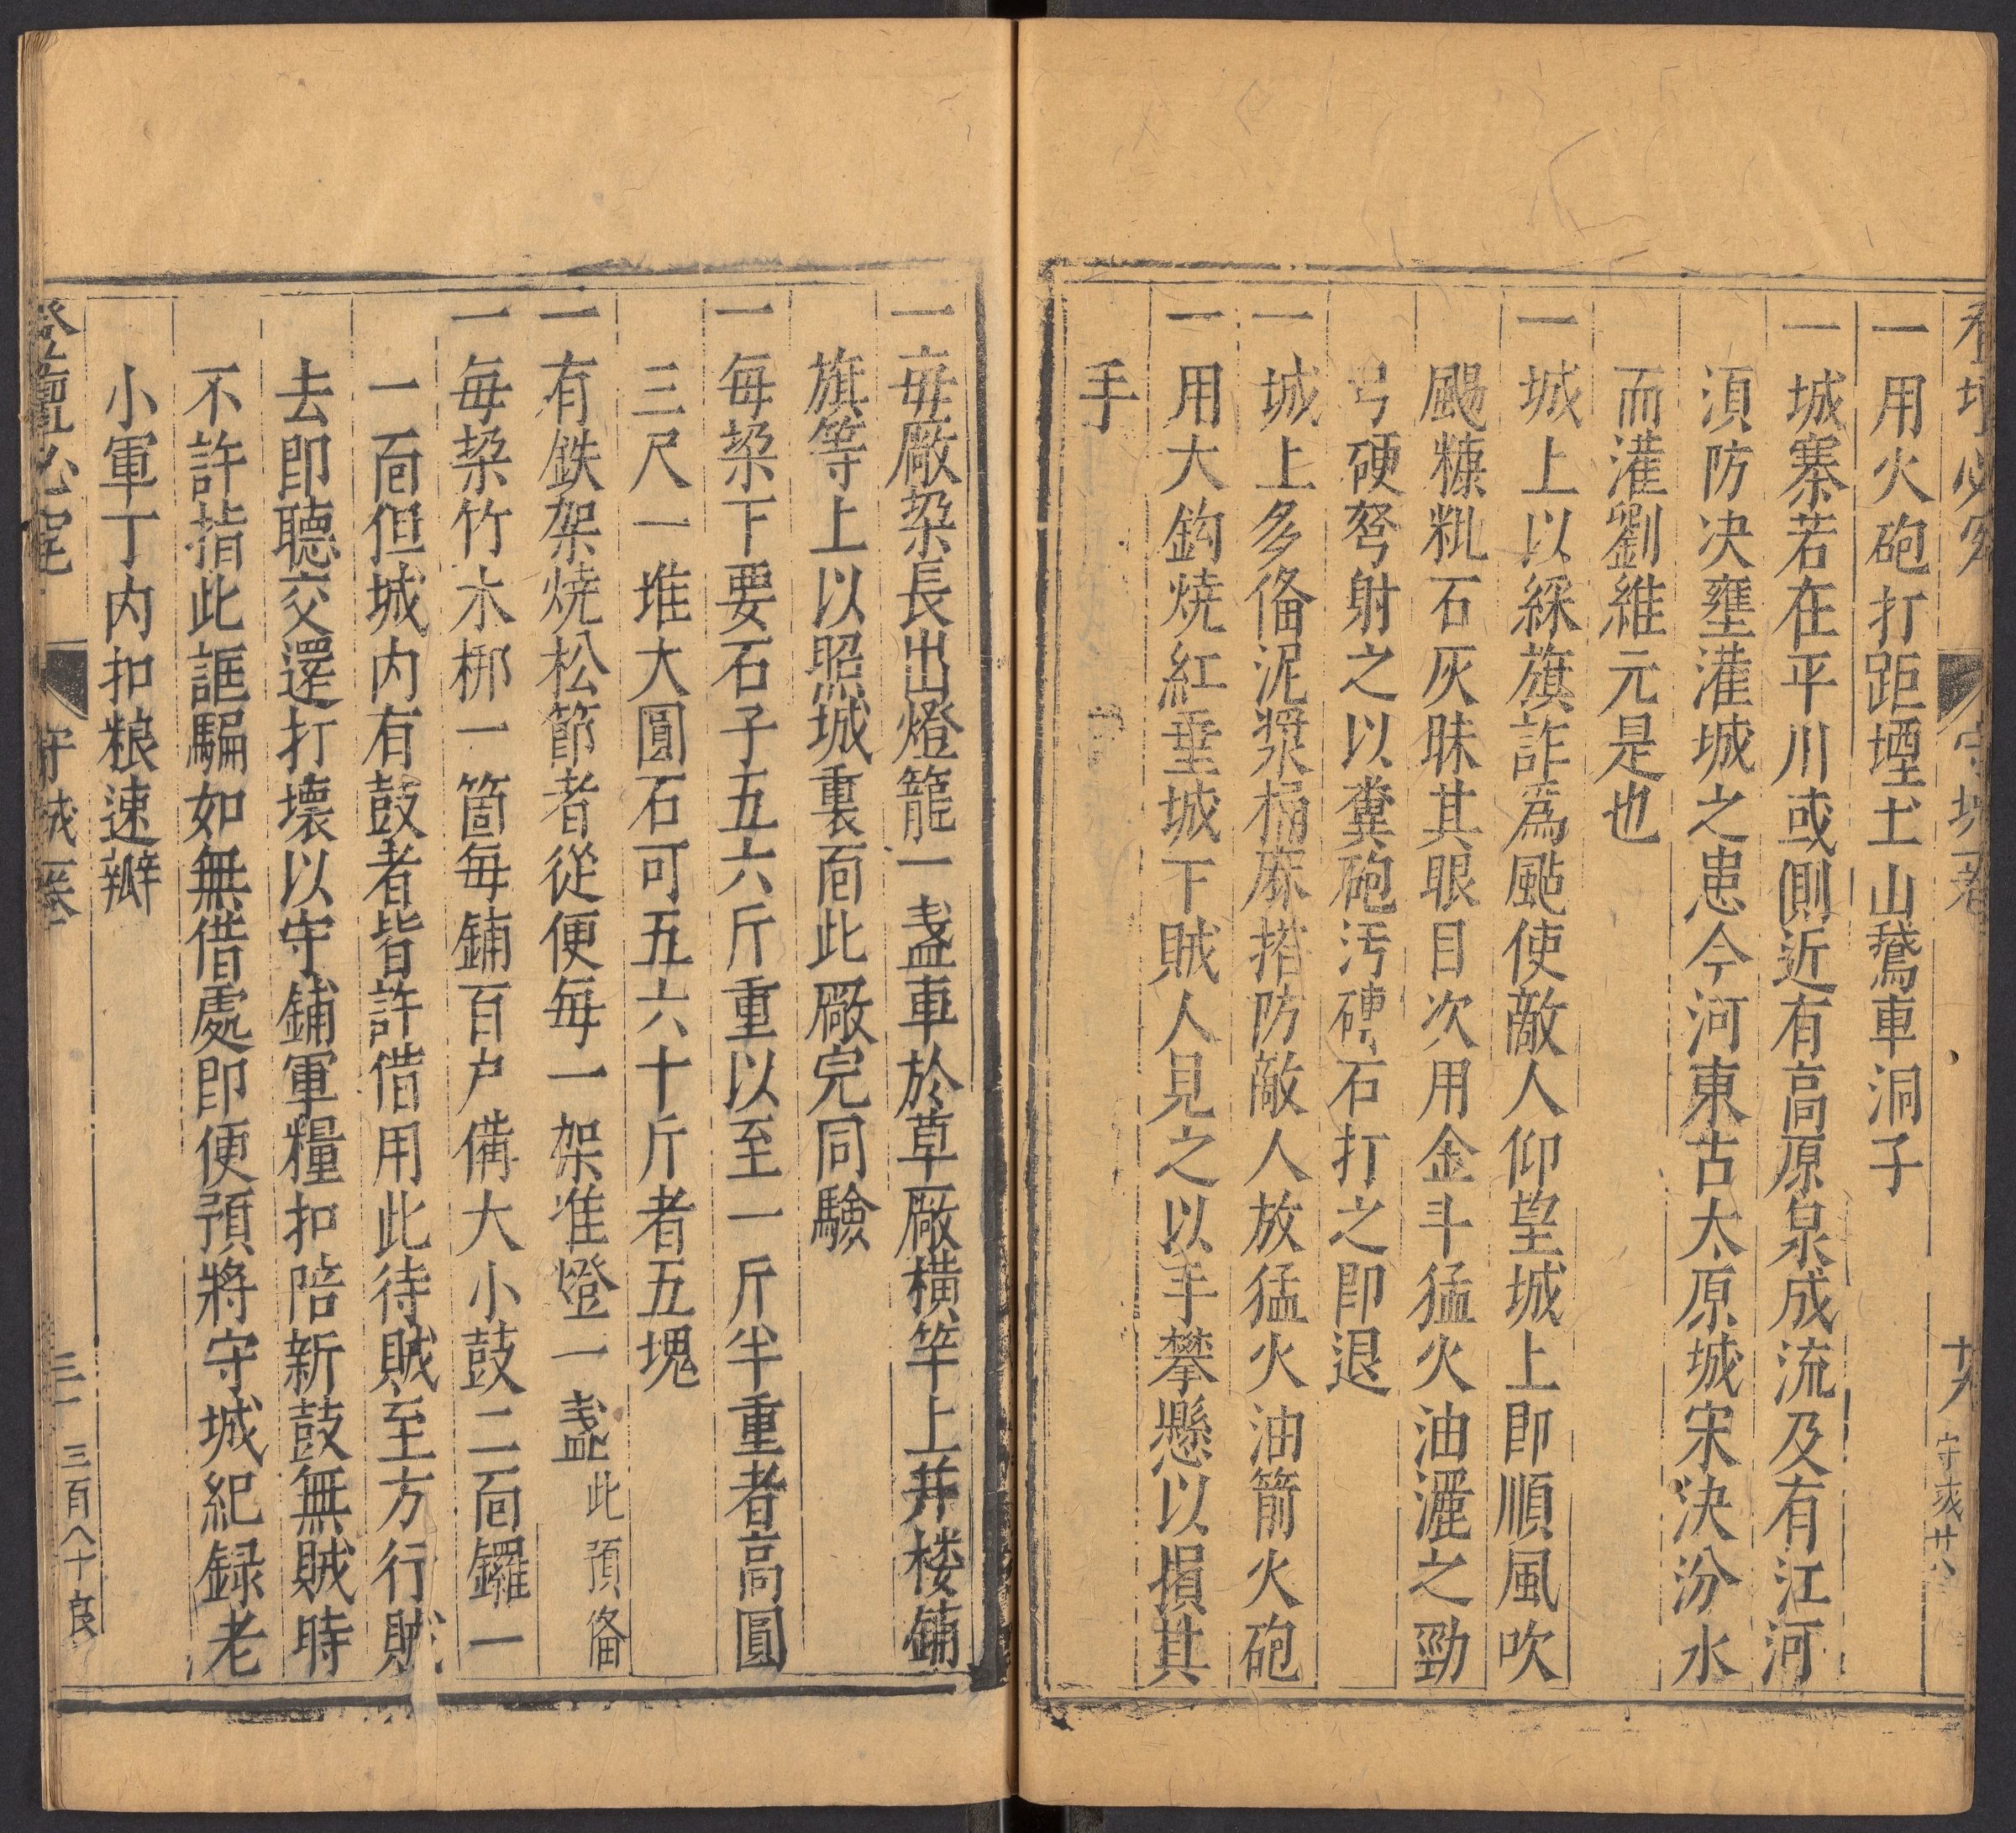 一用火砲打距堙土山鵞車洞子
一城寨若在平川或側近有高原泉成流及有江河
湏防决壅灌城之患今河東古太原城宋決汾水
而灌劉維元是也
一城上以綵旗詐爲颭使敵人仰望城上即順風吹
颺糠粃石灰眯其眼目次用金斗猛火油灑之勁
弓硬弩射之以糞砲汚磚石打之即退
一城上多俻泥漿桶麻搭防敵人放猛火油箭火砲
一用大鈎燒紅垂城下賊人見之以手攀懸以損其
手
一毎厰梁長出燈籠一盞車於草厰橫竿上并楼鋪
旗等上以照城裏面此厰完同驗
一毎梁下要石子五六斤重以至一斤半重者高圓
三尺一堆大圓石可五六十斤者五塊
一有鉄架燒松節者從便毎一架准燈一盞此預俻
一毎梁竹木梆一箇毎鋪百户備大小鼓二面鑼一
一面但城内有鼓者皆許借用此待賊至方行賊
去即聽交還打壞以守鋪軍糧扣陪新鼓無賊時
不許指此誆騙如無借處即便預將守城紀録老
小軍丁内扣粮速辦
登壇必究
守城
三一
三百八十